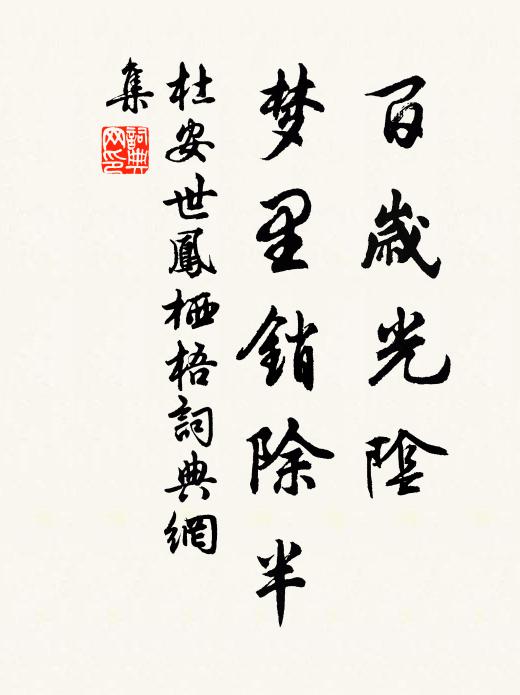 百歲光陰
梦里銷除半
杜安世鳳栖梧詞典網
集
詞典網印